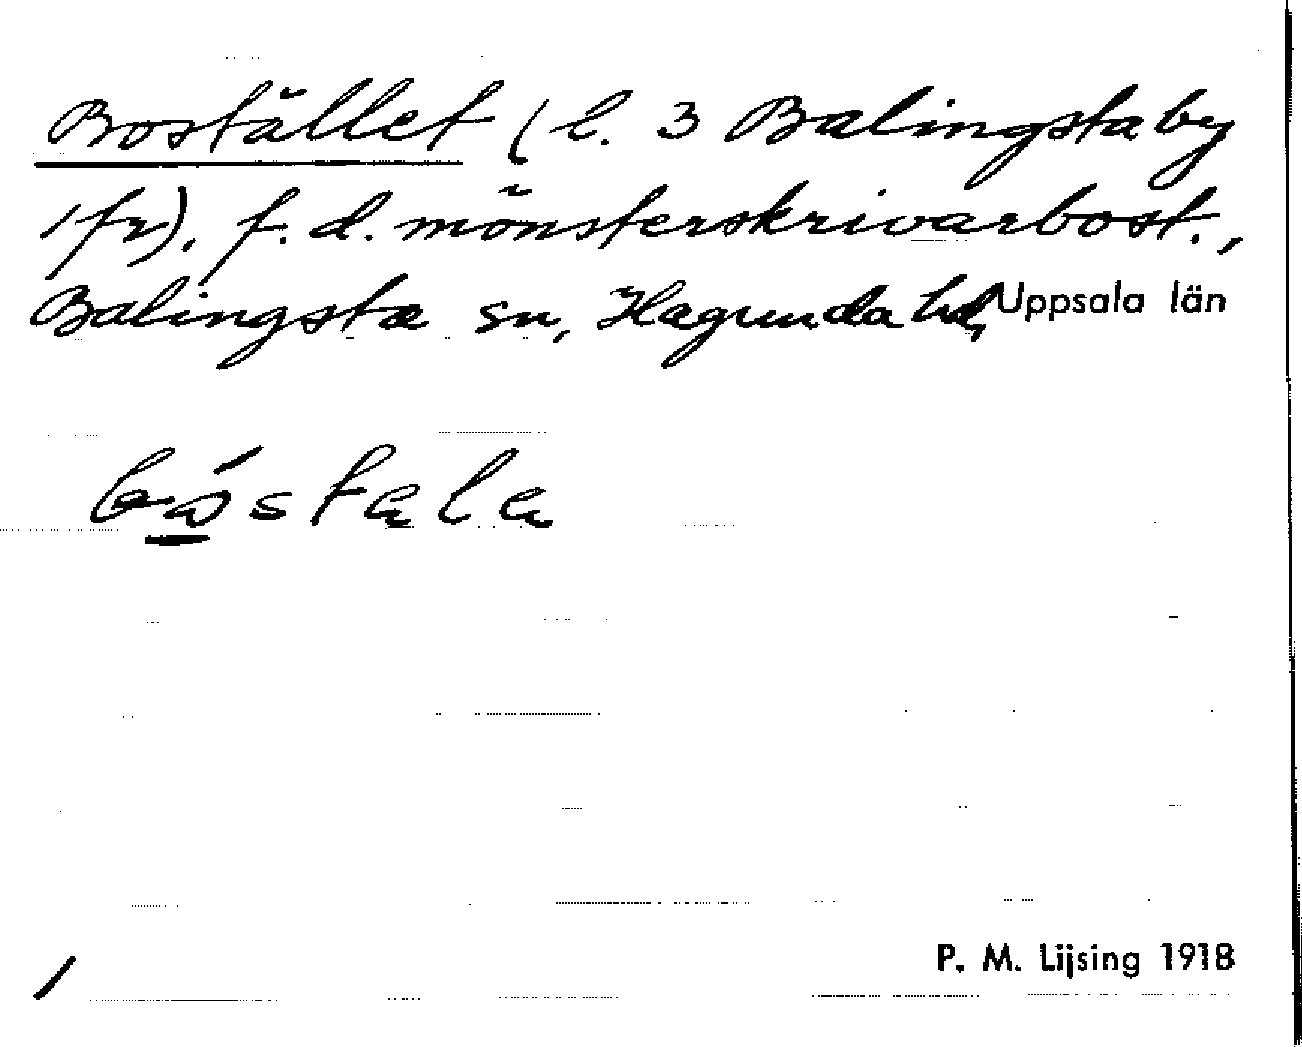 Bostället (l. 3 Balingsta by
1 fr), f. d. mönsterskrivarbost.,
Balingsta sn, Hagunda hd, Uppsala län
bóstala
/
P. M. Lijsing 1918